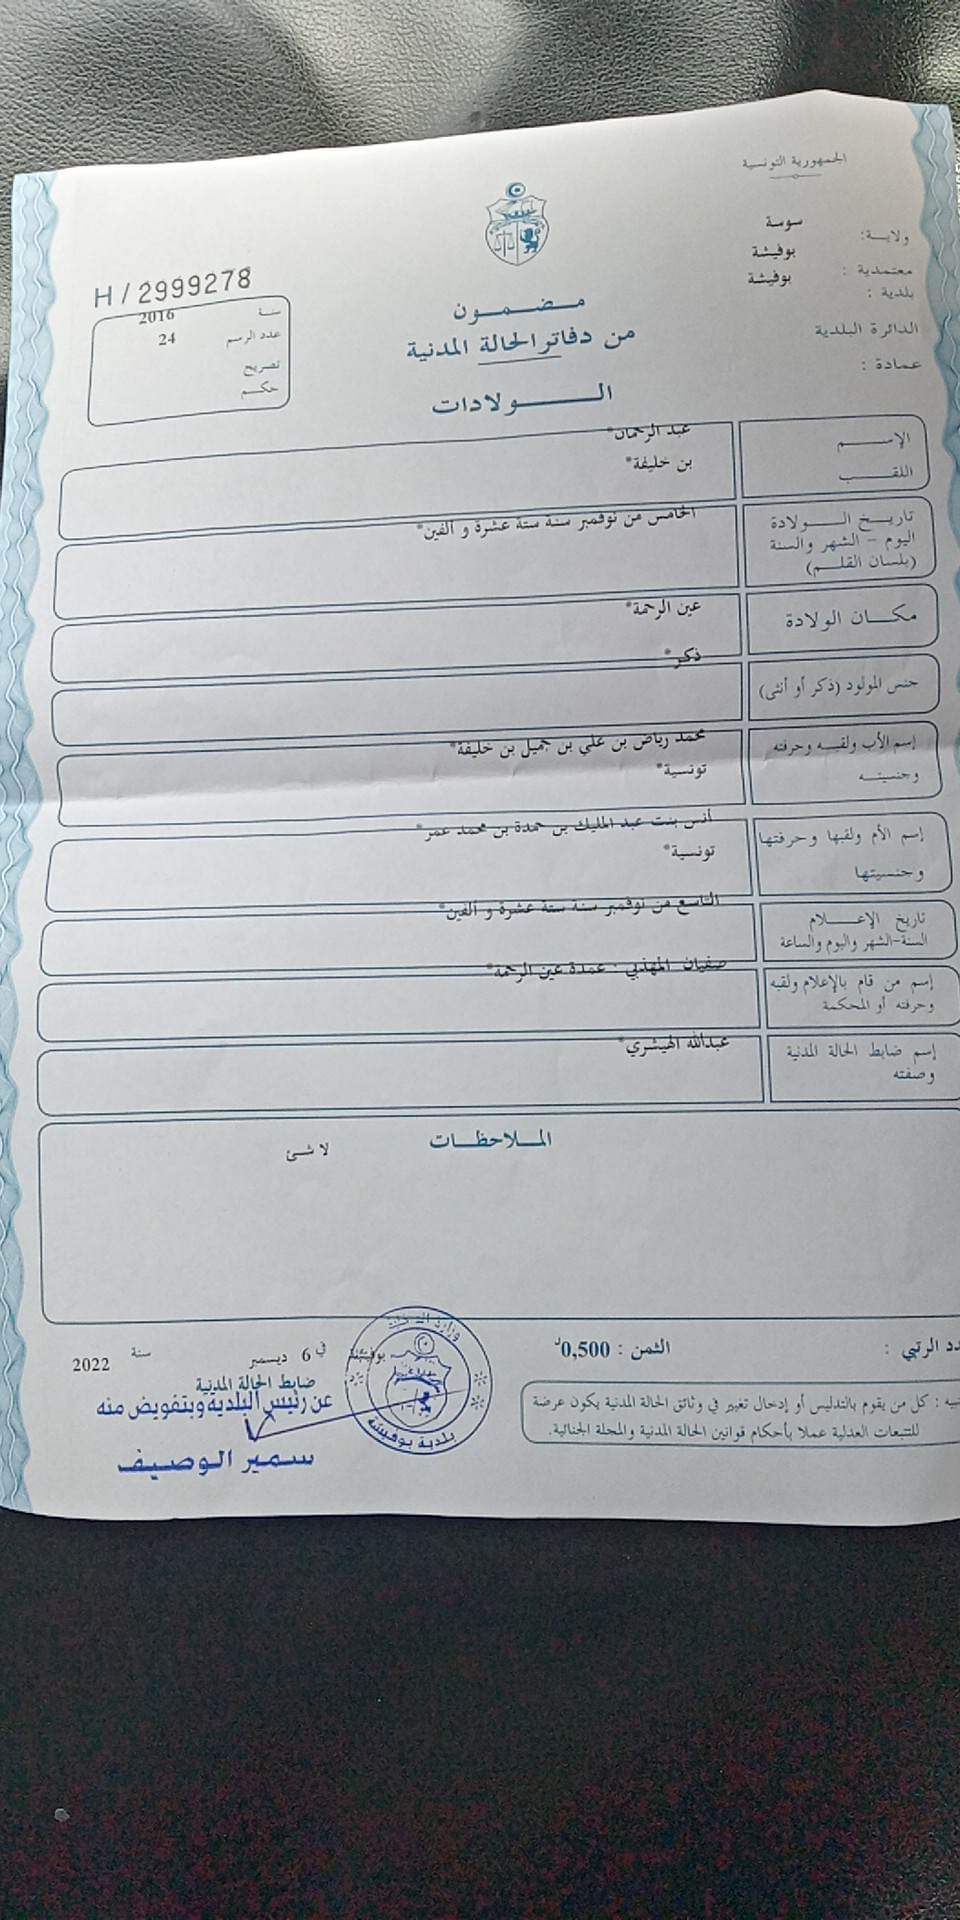 الجمهورية التونسية
ولايـــة: سوسة
معتمدية : بوفيشة
بلدية : بوفيشة
الدائرة البلدية
عمادة :
H / 2999278
سنة 2016
عدد الرسم 24
تصريح
حكـــم
مــضــمــون
من دفاتر الحالة المدنية
الــــولادات
الإســـــم عبد الرحمان*
اللقـــــب بن خليفة*
تاريـــخ الـــــولادة الخامس من نوفمبر سنة ستة عشرة و الفين*
اليوم – الشهر والسنة
(بلسان القلـــم)
مكـــان الولادة عين الرحمة*
جنس المولود (ذكر أو أنثى) ذكر*
إسم الأب ولقبـــه وحرفته محمد رياض بن علي بن جميل بن خليفة*
وجنسيتـــه تونسية*
إسم الأم ولقبها وحرفتها أنس بنت عبد المليك بن حمدة بن محمد عمر*
وجنسيتها تونسية*
تاريخ الإعـــــلام التاسع من نوفمبر سنة ستة عشرة و الفين*
السنة-الشهر واليوم والساعة
إسم من قام بالإعلام ولقبه صفيان المهذبي : عمدة عين الرحمة*
وحرفته أو المحكمة
إسم ضابط الحالة المدنية عبدالله الهيشري*
وصفته
المـــلاحظـــات
لا شئ
دد الرتبي :
الثمن : 0,500د
بوفيشة في 6 ديسمبر سنة 2022
ضابط الحالة المدنية
عن رئيس البلدية وبتفويض منه
سمير الوصيف
بلدية بوفيشة
نبيه : كل من يقوم بالتدليس أو إدخال تغيير في وثائق الحالة المدنية يكون عرضة
للتتبعات العدلية عملا بأحكام قوانين الحالة المدنية والمجلة الجنائية.